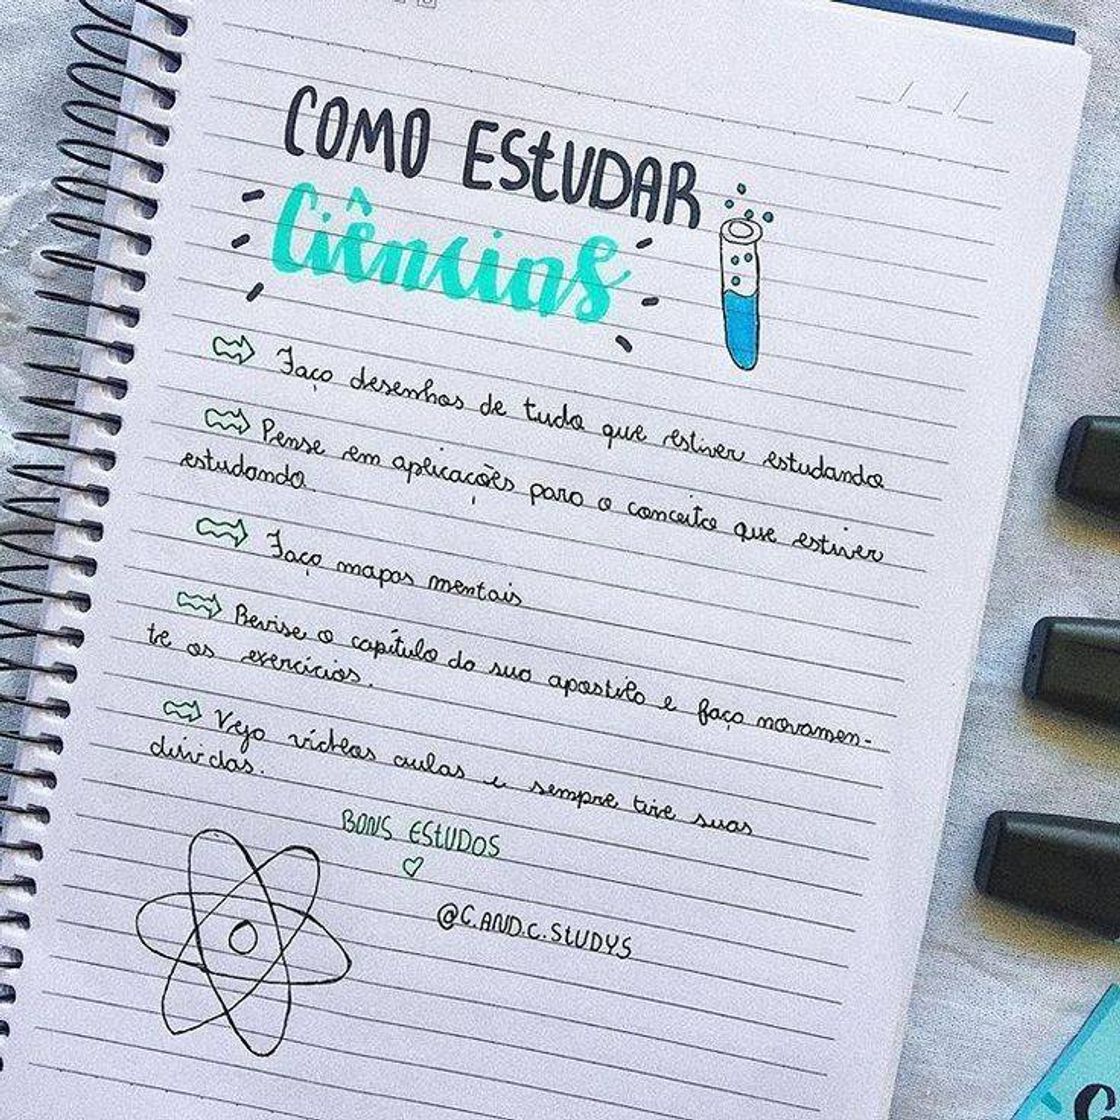 COMO ESTUDAR
Ciências
Faça desenhos de tudo que estiver estudando
Pense em aplicações para o conceito que estiver
estudando.
Faça mapas mentais
Revise o capítulo da sua apostila e faça novamen-
te os exercícios.
Veja vídeos aulas e sempre tire suas
dúvidas.
BONS ESTUDOS
@C.AND.C.STUDYS